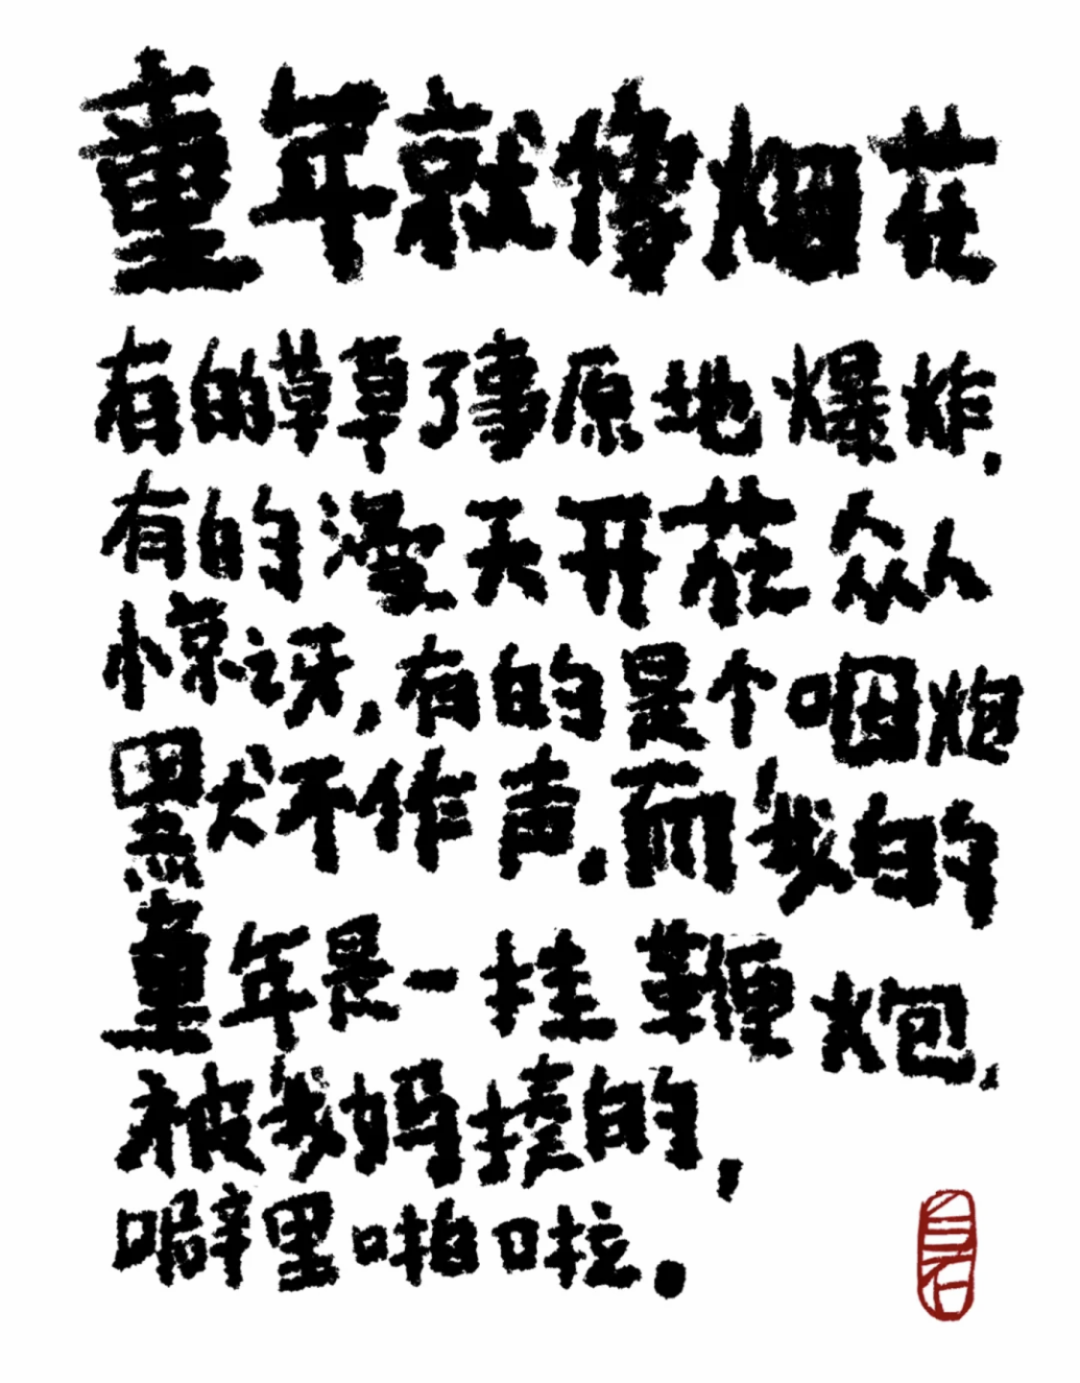 童年就像烟花
有的草草了事原地爆炸.
有的漫天开花众人
惊讶,有的是个哑炮
默不作声.而我的
童年是一挂鞭炮.
被我妈揍的,
噼里啪啦。